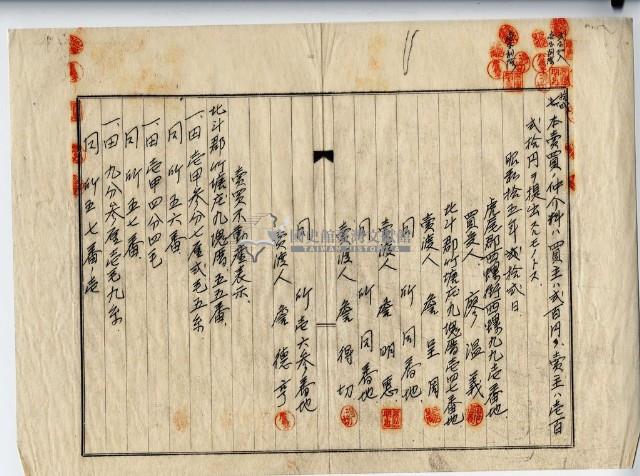 七、本売買ノ仲介料ハ買主ハ弐百円ヲ、売主ハ壱百
弐拾円ヲ提出スルモノトス
昭和拾五年 弐拾弐日
虎尾郡西螺街西螺九九壱番地
買受人 廖温義
北斗郡竹塘庄九塊厝壱四七番地
売渡人 詹呈周
同所同番地
売渡人 詹明惠
同所同番地
売渡人 詹得切
同所壱六参番地
売渡人 詹德亨
売買不動産表示
北斗郡竹塘庄九塊厝五五番
一、田 壱甲参分七厘弐毛五糸
同所五六番
一、田 壱甲四分四毛
同所五七番
一、田 九分参厘壱毛九糸
同所五七番ノ壱
國史館臺灣文獻館
TAIWAN HISTORICA